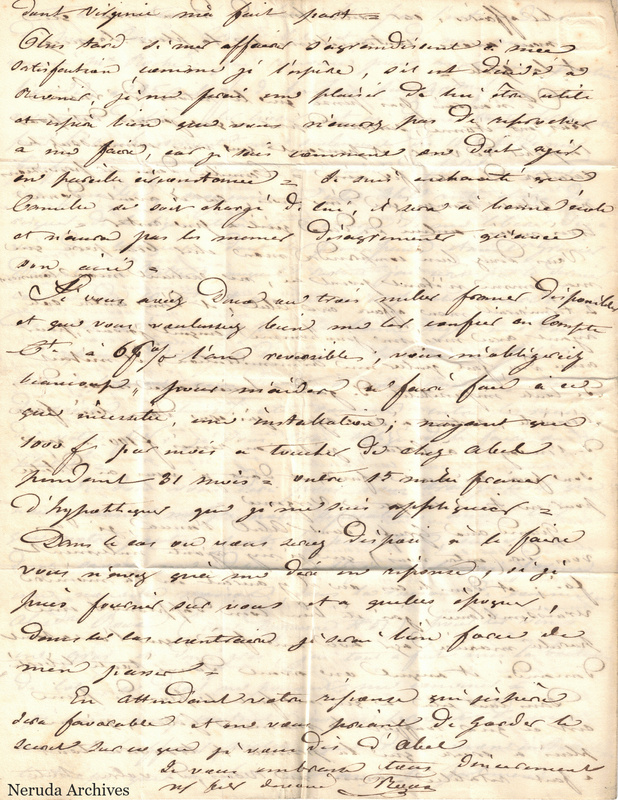 dont Virginie m'a fait part =
Plus tard si mes affaires s'agrandissent à ma
satisfaction, comme je l'espère, s'il est décidé à
revenir, je me ferai un plaisir de lui être utile
et espère bien que vous n'aurez pas de reproches
a me faire, car je sais comment on doit agir
en pareille circonstance = Je suis enchanté que
Camille se soit chargé de lui, il sera à bonne école
et n'aura pas les mêmes désagréments qu'avec
son ainé =
Si vous aviez deux ou trois milles francs disponibles
et que vous voulussiez bien me les confier en compte
Ct. à 6 % l'an reversibles, vous m'obligeriez
beaucoup, pour m'aider a faire face à ce
que nécessite une installation; n'ayant que
1000 f par mois a toucher de chez Abel
pendant 31 mois = outre 15 milles francs
d'hypothèques que je me suis
Dans le cas ou vous seriez disposé à le faire
vous n'avez qu'à me dire en réponse, si je
puis fournir sur vous et a quelles époques,
dans le cas contraire je serai bien forcé de
m'en passer =
En attendant votre réponse que j'espère
sera favorable et en vous priant de garder le
secret sur ce que je vous dis d'Abel
Je vous embrasse tous sincèrement
Neruda Archives